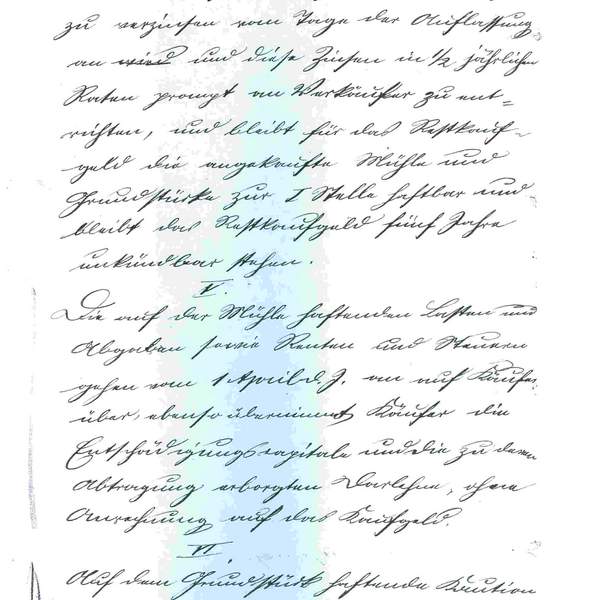 zu verzinsen vom Tage der Auflassung
an wird und diese Zinsen in 1/2 jährlichen
Raten prompt an Verkäufer zu ent=
richten, und bleibt für das Restkauf=
geld die angekaufte Mühle und
Grundstücke zur I Stelle haftbar und
bleibt das Restkaufgeld fünf Jahre
unkündbar stehen.
V.
Die auf der Mühle haftenden Lasten und
Abgaben sowie Renten und Steuern
gehen vom 1 April d. J. an auf Käufer
über, ebenso übernimmt Käufer die
Entschädigungscapitale und die zu deren
Abtragung erborgten Darlehne, ohne
Anrechnung auf das Kaufgeld.
VI.
Auf dem Grundstück haftende Kaution